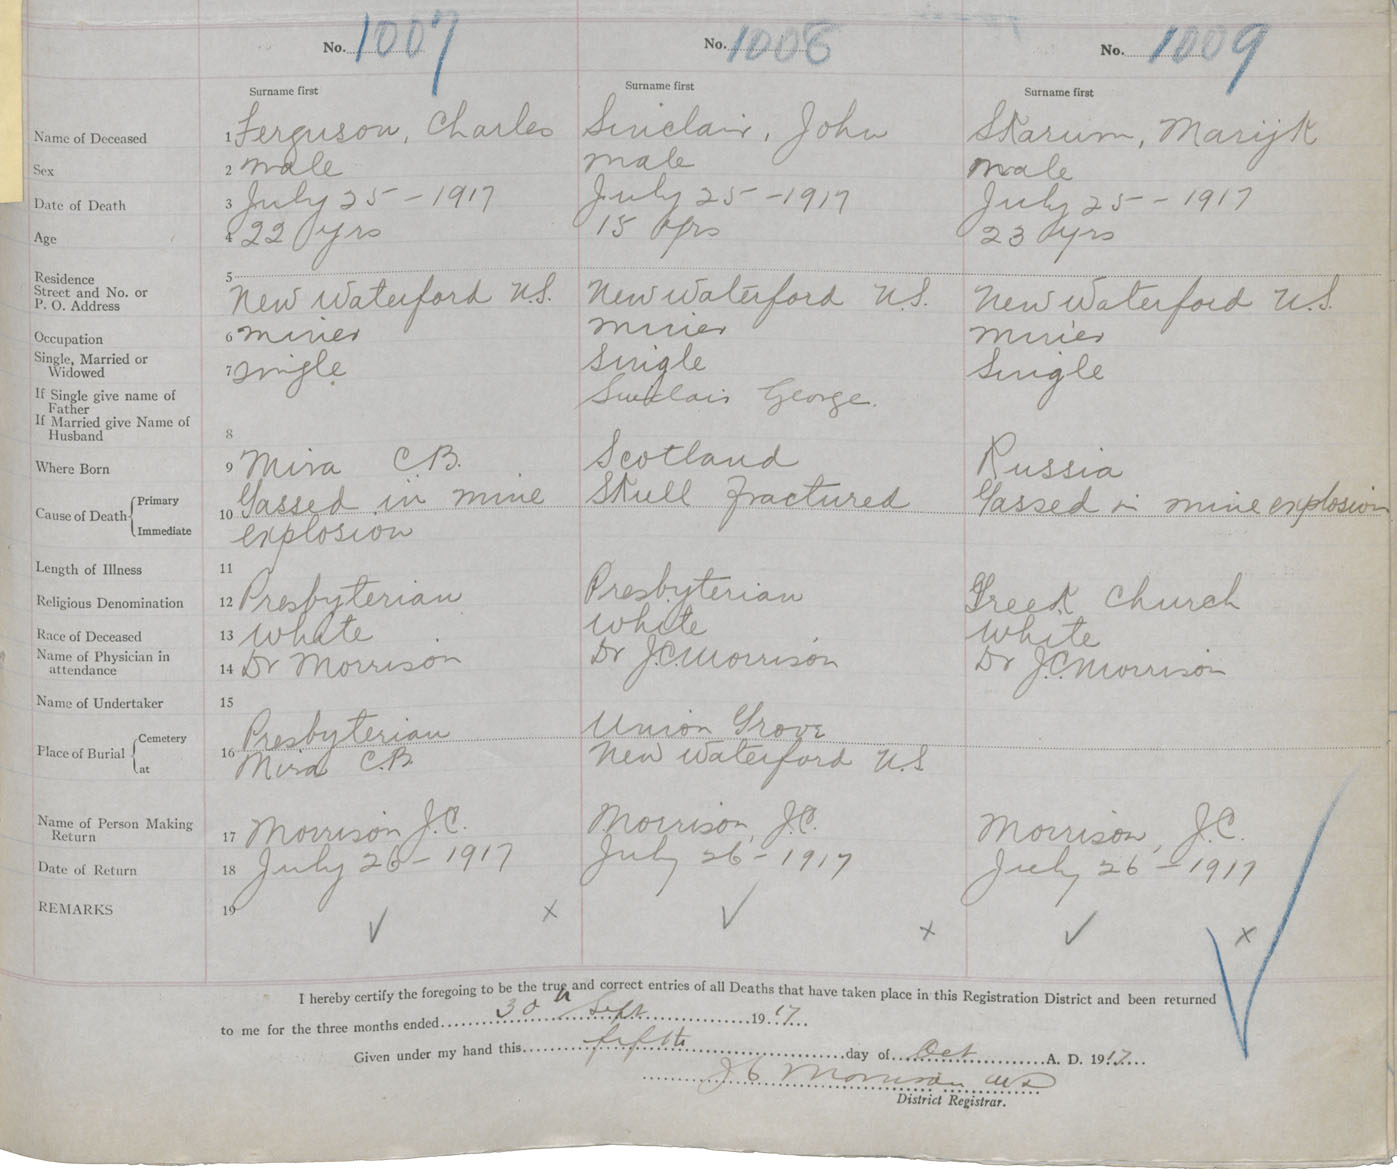 No. 1007 No. 1008 No. 1009
Surname first Surname first Surname first
Name of Deceased 1 Ferguson, Charles Sinclair, John Skarum, Marijk
Sex 2 male male male
Date of Death 3 July 25 - 1917 July 25 - 1917 July 25 - 1917
Age 4 22 yrs 15 yrs 23 yrs
Residence 5
Street and No. or
P. O. Address New Waterford N.S. New Waterford N.S. New Waterford N.S.
Occupation 6 miner miner miner
Single, Married or
Widowed 7 single Single Single
If Single give name of
Father Sinclair George.
If Married give Name of
Husband 8
Where Born 9 Mira C.B. Scotland Russia
Cause of Death Primary Gassed in mine Skull fractured Gassed in mine explosion
10
Immediate explosion
Length of Illness 11
Religious Denomination 12 Presbyterian Presbyterian Greek Church
Race of Deceased 13 White White White
Name of Physician in
attendance 14 Dr Morrison Dr J.C. Morrison Dr J.C. Morrison
Name of Undertaker 15
Place of Burial Cemetery Presbyterian Union Grove
16
at Mira C.B. New Waterford N.S
Name of Person Making
Return 17 Morrison J.C. Morrison, J.C. Morrison, J.C.
Date of Return 18 July 26 - 1917 July 26 - 1917 July 26 - 1917
REMARKS 19
I hereby certify the foregoing to be the true and correct entries of all Deaths that have taken place in this Registration District and been returned
to me for the three months ended 30th Sept 1917
Given under my hand this fifth day of Oct A. D. 1917
J C Morrison MD
District Registrar.